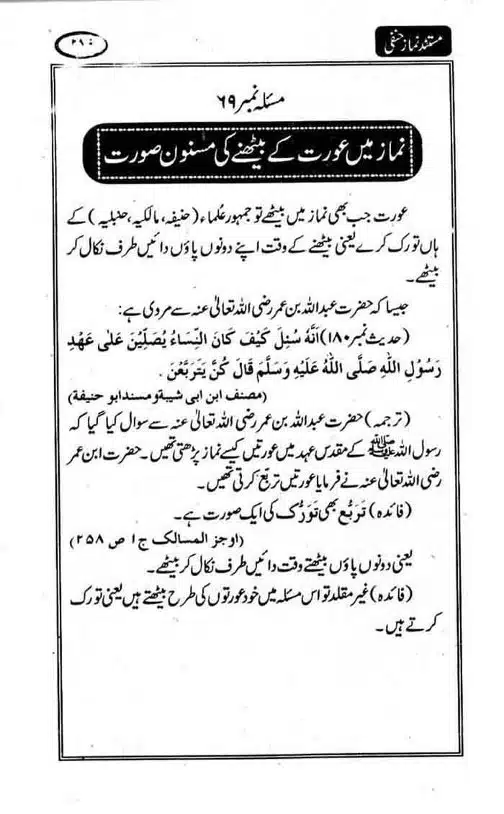 مستند نماز حنفی
مسئلہ نمبر ۶۹
نماز میں عورت کے بیٹھنے کی مسنون صورت
عورت جب بھی نماز میں بیٹھے تو جمہور علماء (حنیفہ، مالکیہ، حنبلیہ) کے
ہاں تورک کرے یعنی بیٹھنے کے وقت اپنے دونوں پاؤں دائیں طرف نکال کر
بیٹھے۔
جیسا کہ حضرت عبداللہ بن عمر رضی اللہ تعالیٰ عنہ سے مروی ہے:
(حدیث نمبر ۱۸۰) اَنَّهُ سُئِلَ كَيْفَ كَانَ النِّسَاءُ يُصَلِّيْنَ عَلٰى عَهْدِ
رَسُوْلِ اللهِ صَلَّى اللهُ عَلَيْهِ وَسَلَّمَ قَالَ كُنَّ يَتَرَبَّعْنَ.
(مصنف ابن ابی شیبة ومسند ابو حنیفة)
(ترجمہ) حضرت عبداللہ بن عمر رضی اللہ تعالیٰ عنہ سے سوال کیا گیا کہ
رسول اللہ ﷺ کے مقدس عہد میں عورتیں کیسے نماز پڑھتی تھیں۔ حضرت ابن عمر
رضی اللہ تعالیٰ عنہ نے فرمایا عورتیں تربّع کرتی تھیں۔
(فائدہ) تَرَبُّع بھی تَوَرُّک کی ایک صورت ہے۔
(اوجز المسالک ج ۱ ص ۲۵۸)
یعنی دونوں پاؤں بیٹھتے وقت دائیں طرف نکال کر بیٹھے۔
(فائدہ) غیر مقلد تو اس مسئلہ میں خود عورتوں کی طرح بیٹھتے ہیں یعنی تورک
کرتے ہیں۔